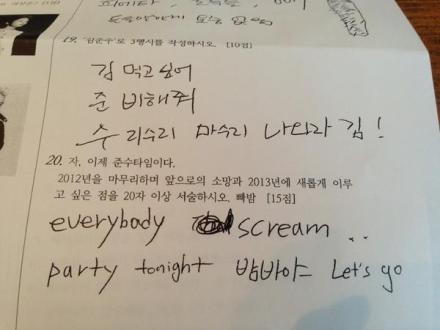 19. '김준수'로 3행시를 작성하시오. [10점]
김 먹고 싶어
준 비해줘
수 리수리 마수리 나와라 김!
20. 자, 이제 준수타임이다.
2012년을 마무리하며 앞으로의 소망과 2013년에 새롭게 이루
고 싶은 점을 20자 이상 서술하시오. 빠밤 [15점]
everybody scream ..
party tonight 밤바야 Let's go